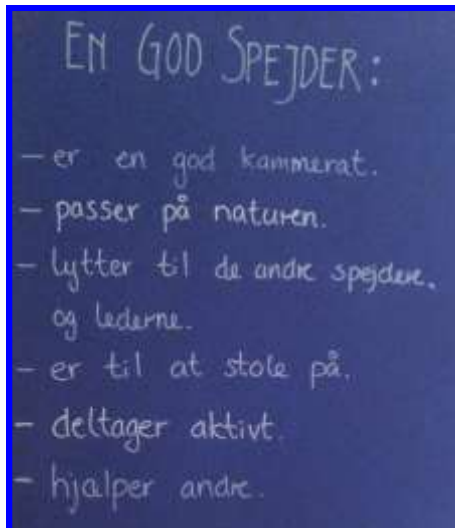 EN GOD SPEJDER:
- er en god kammerat.
- passer på naturen.
- lytter til de andre spejdere.
og lederne.
- er til at stole på.
- deltager aktivt.
- hjælper andre.